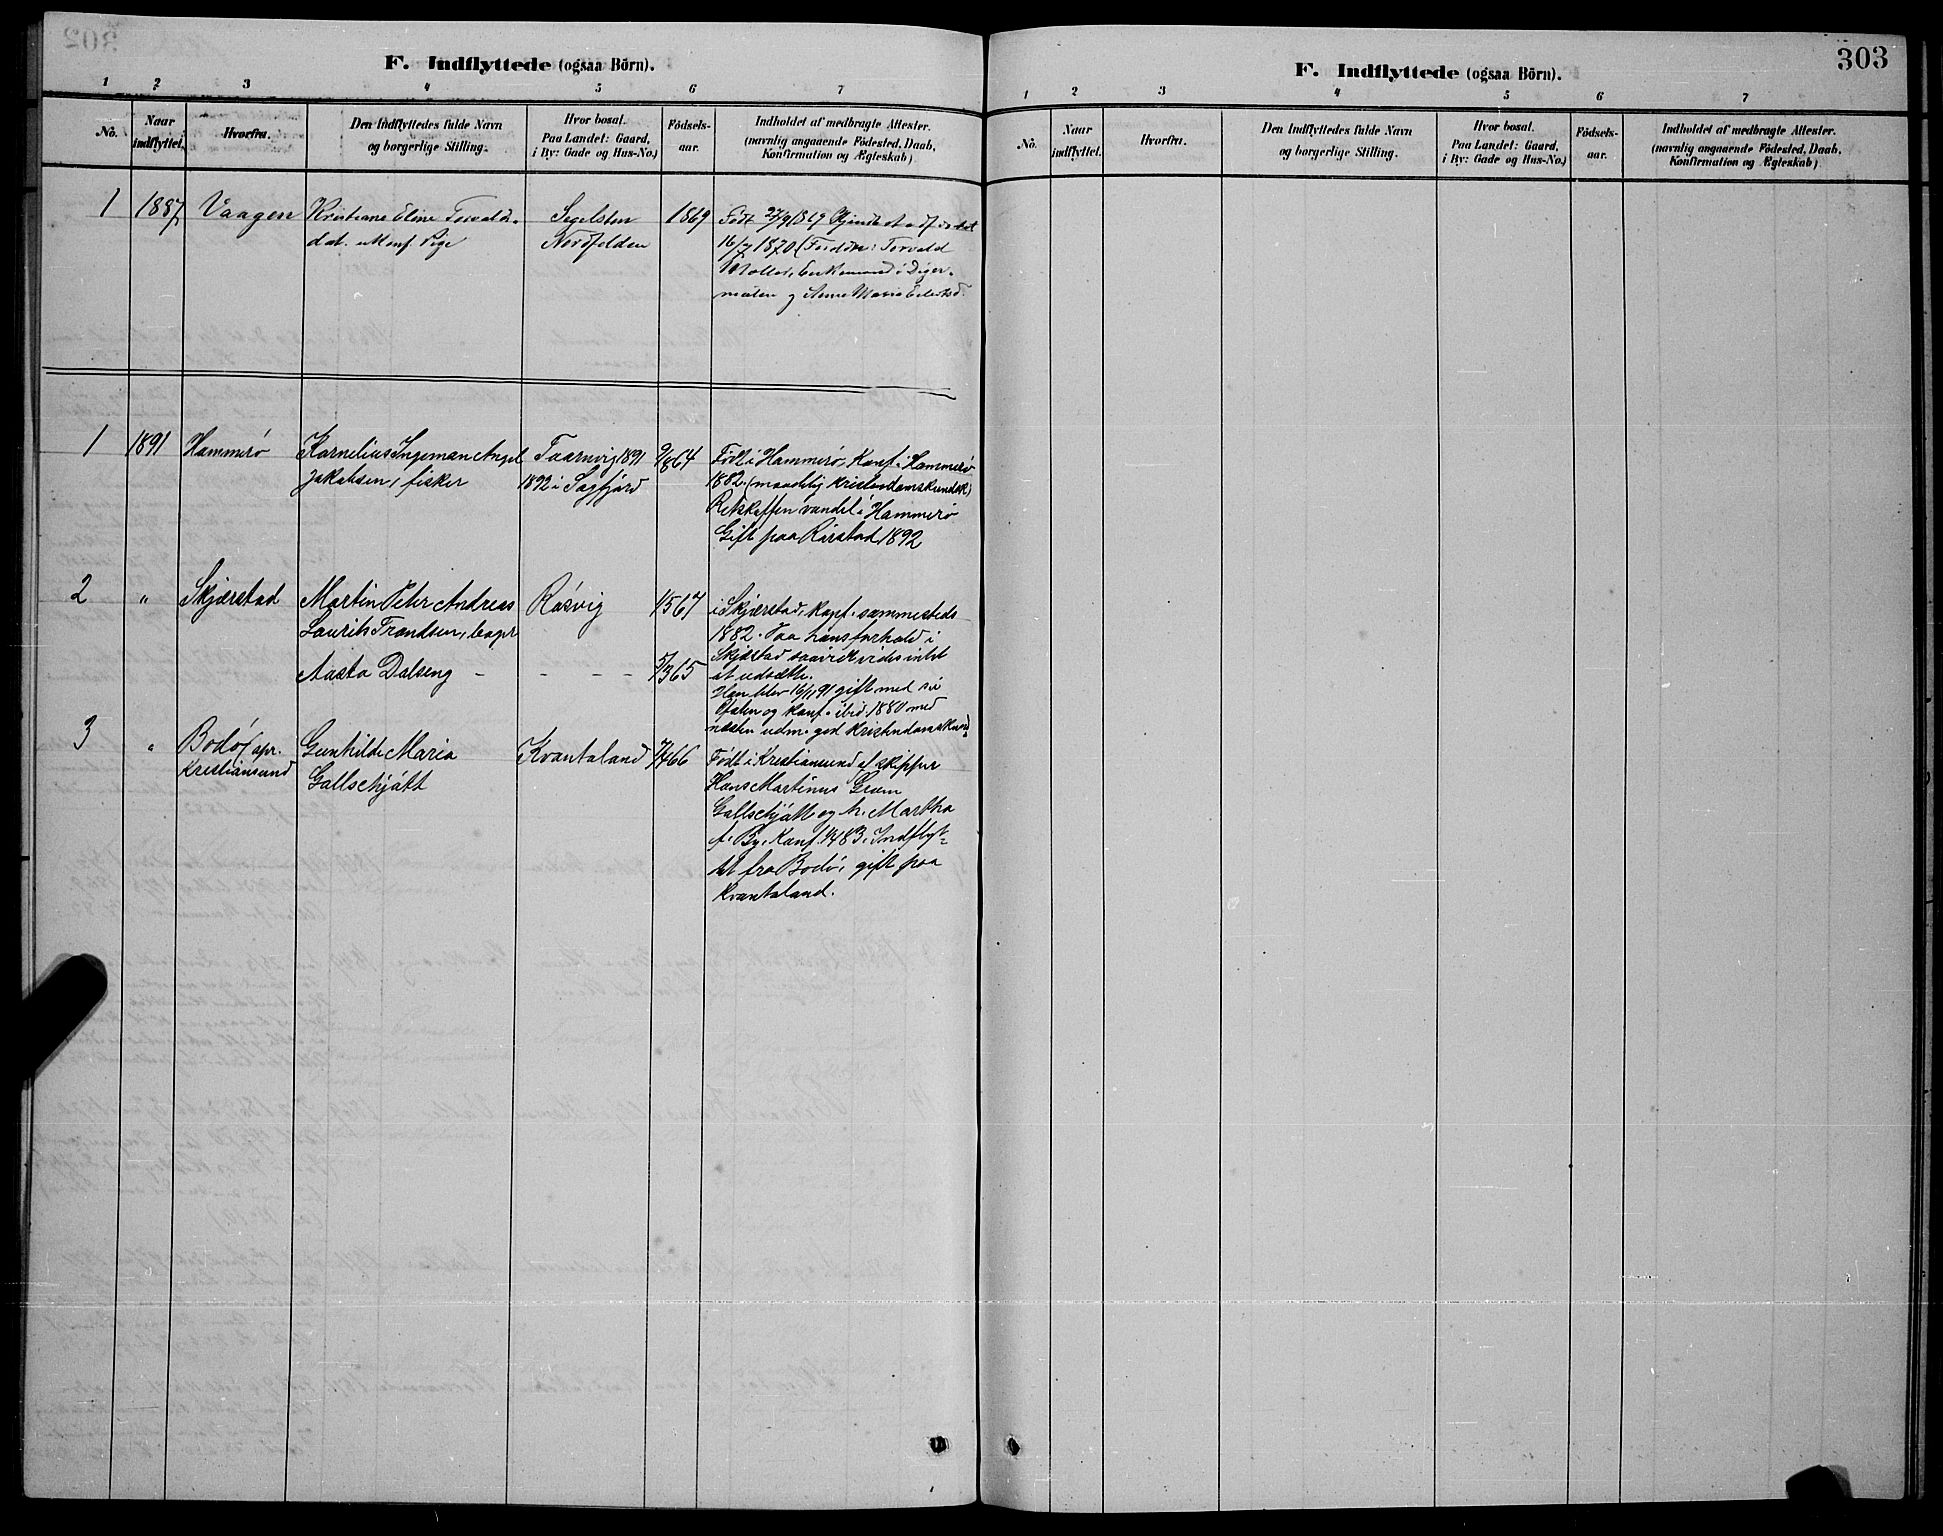 F. Indflyttede (ogsaa Börn).
1 2 3 4 5 6 7
No.
Naar indflyttet.
Hvorfra.
Den Indflyttedes fulde Navn og borgerlige Stilling.
Hvor bosat. Paa Landet: Gaard, i By: Gade og Hus-No.)
Födsels-aar.
Indholdet af medbragte Attester. (navnlig angaaende Födested, Daab, Konfirmation og Ægteskab)
1 1887 Vaagen Kristiane Eline Torvalds-
dat. ukonf. Pige
Segelsten
Nordfolden
1869
Født 27/9 1869
16/7 1870 (Foræld: Torvald
i Diger-
mulen og Anne Maria
1 1891 Hammerö Kornelius Ingeman Angel
Jakobsen, fisker
Taarnvig 1891
1892 i Sagfjord
9/864
Født i Hammerö, Konf. i Hammerö
1882. (maadelig kristendomskundsk)
Retskaffen vandel i Hammerö
Gift paa Rörstad 1892
2 " Skjærstad Martin Peter Andreas
Laurits Trondsen,
Rösvig
1/567
i Skjærstad, konf. sammesteds
1882. Paa hans forhold i
Skjærstad vides intet
at udsætte.
Aasta Dalseng - - - - -
5/365
Han blev 16/1 91 gift med
og konf. ibid. 1880 med
næsten udm. god kristendomskund
3 " Bodö (opr.
Kristiansund
Gunhilde Maria
Gallschjött
Kvantaland
7/466
Født i Kristiansund af skipper
Hans Martinus Gram
Gallschjött og h. Martha
f. By. Konf. 1/4 83. Indflyt-
tet fra Bodö, gift paa
Kvantaland.
303
F. Indflyttede (ogsaa Börn).
1 2 3 4 5 6 7
No.
Naar indflyttet.
Hvorfra.
Den Indflyttedes fulde Navn og borgerlige Stilling.
Hvor bosat. Paa Landet: Gaard, i By: Gade og Hus-No.)
Födsels-aar.
Indholdet af medbragte Attester. (navnlig angaaende Födested, Daab, Konfirmation og Ægteskab)